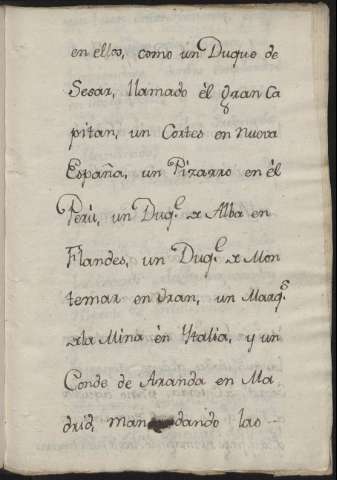 en ellos, como un Duque de
Sesar, llamado él gran Ca
pitan, un Cortes en nueva
España, un Pizarro en él
Perú, un Duq.e de Alba en
Flandes, un Duq.e de Mon
temar en Oran, un Marq.s
dela Mina en Ytalia, y un
Conde de Aranda en Ma
drid, man dando las